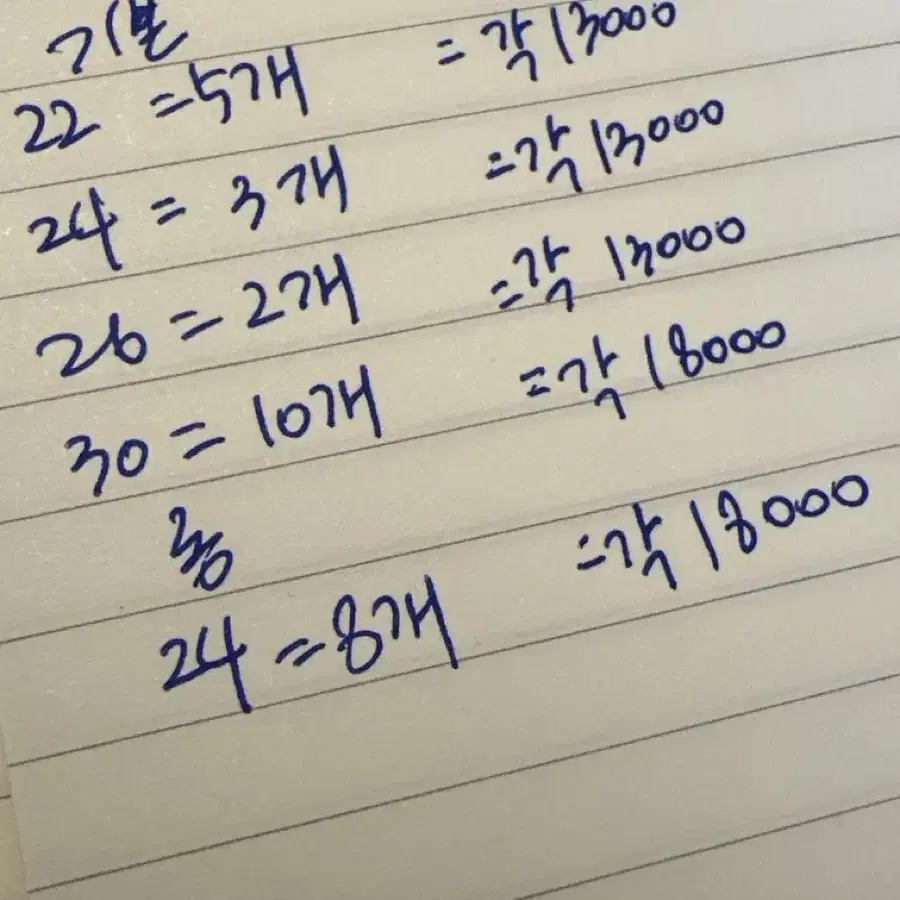 기본
22 =5개 = 각 13000
24 = 3개 =각 13000
26 = 2개 =각 13000
30 = 10개 =각 18000
롱
24 =8개 =각 18000